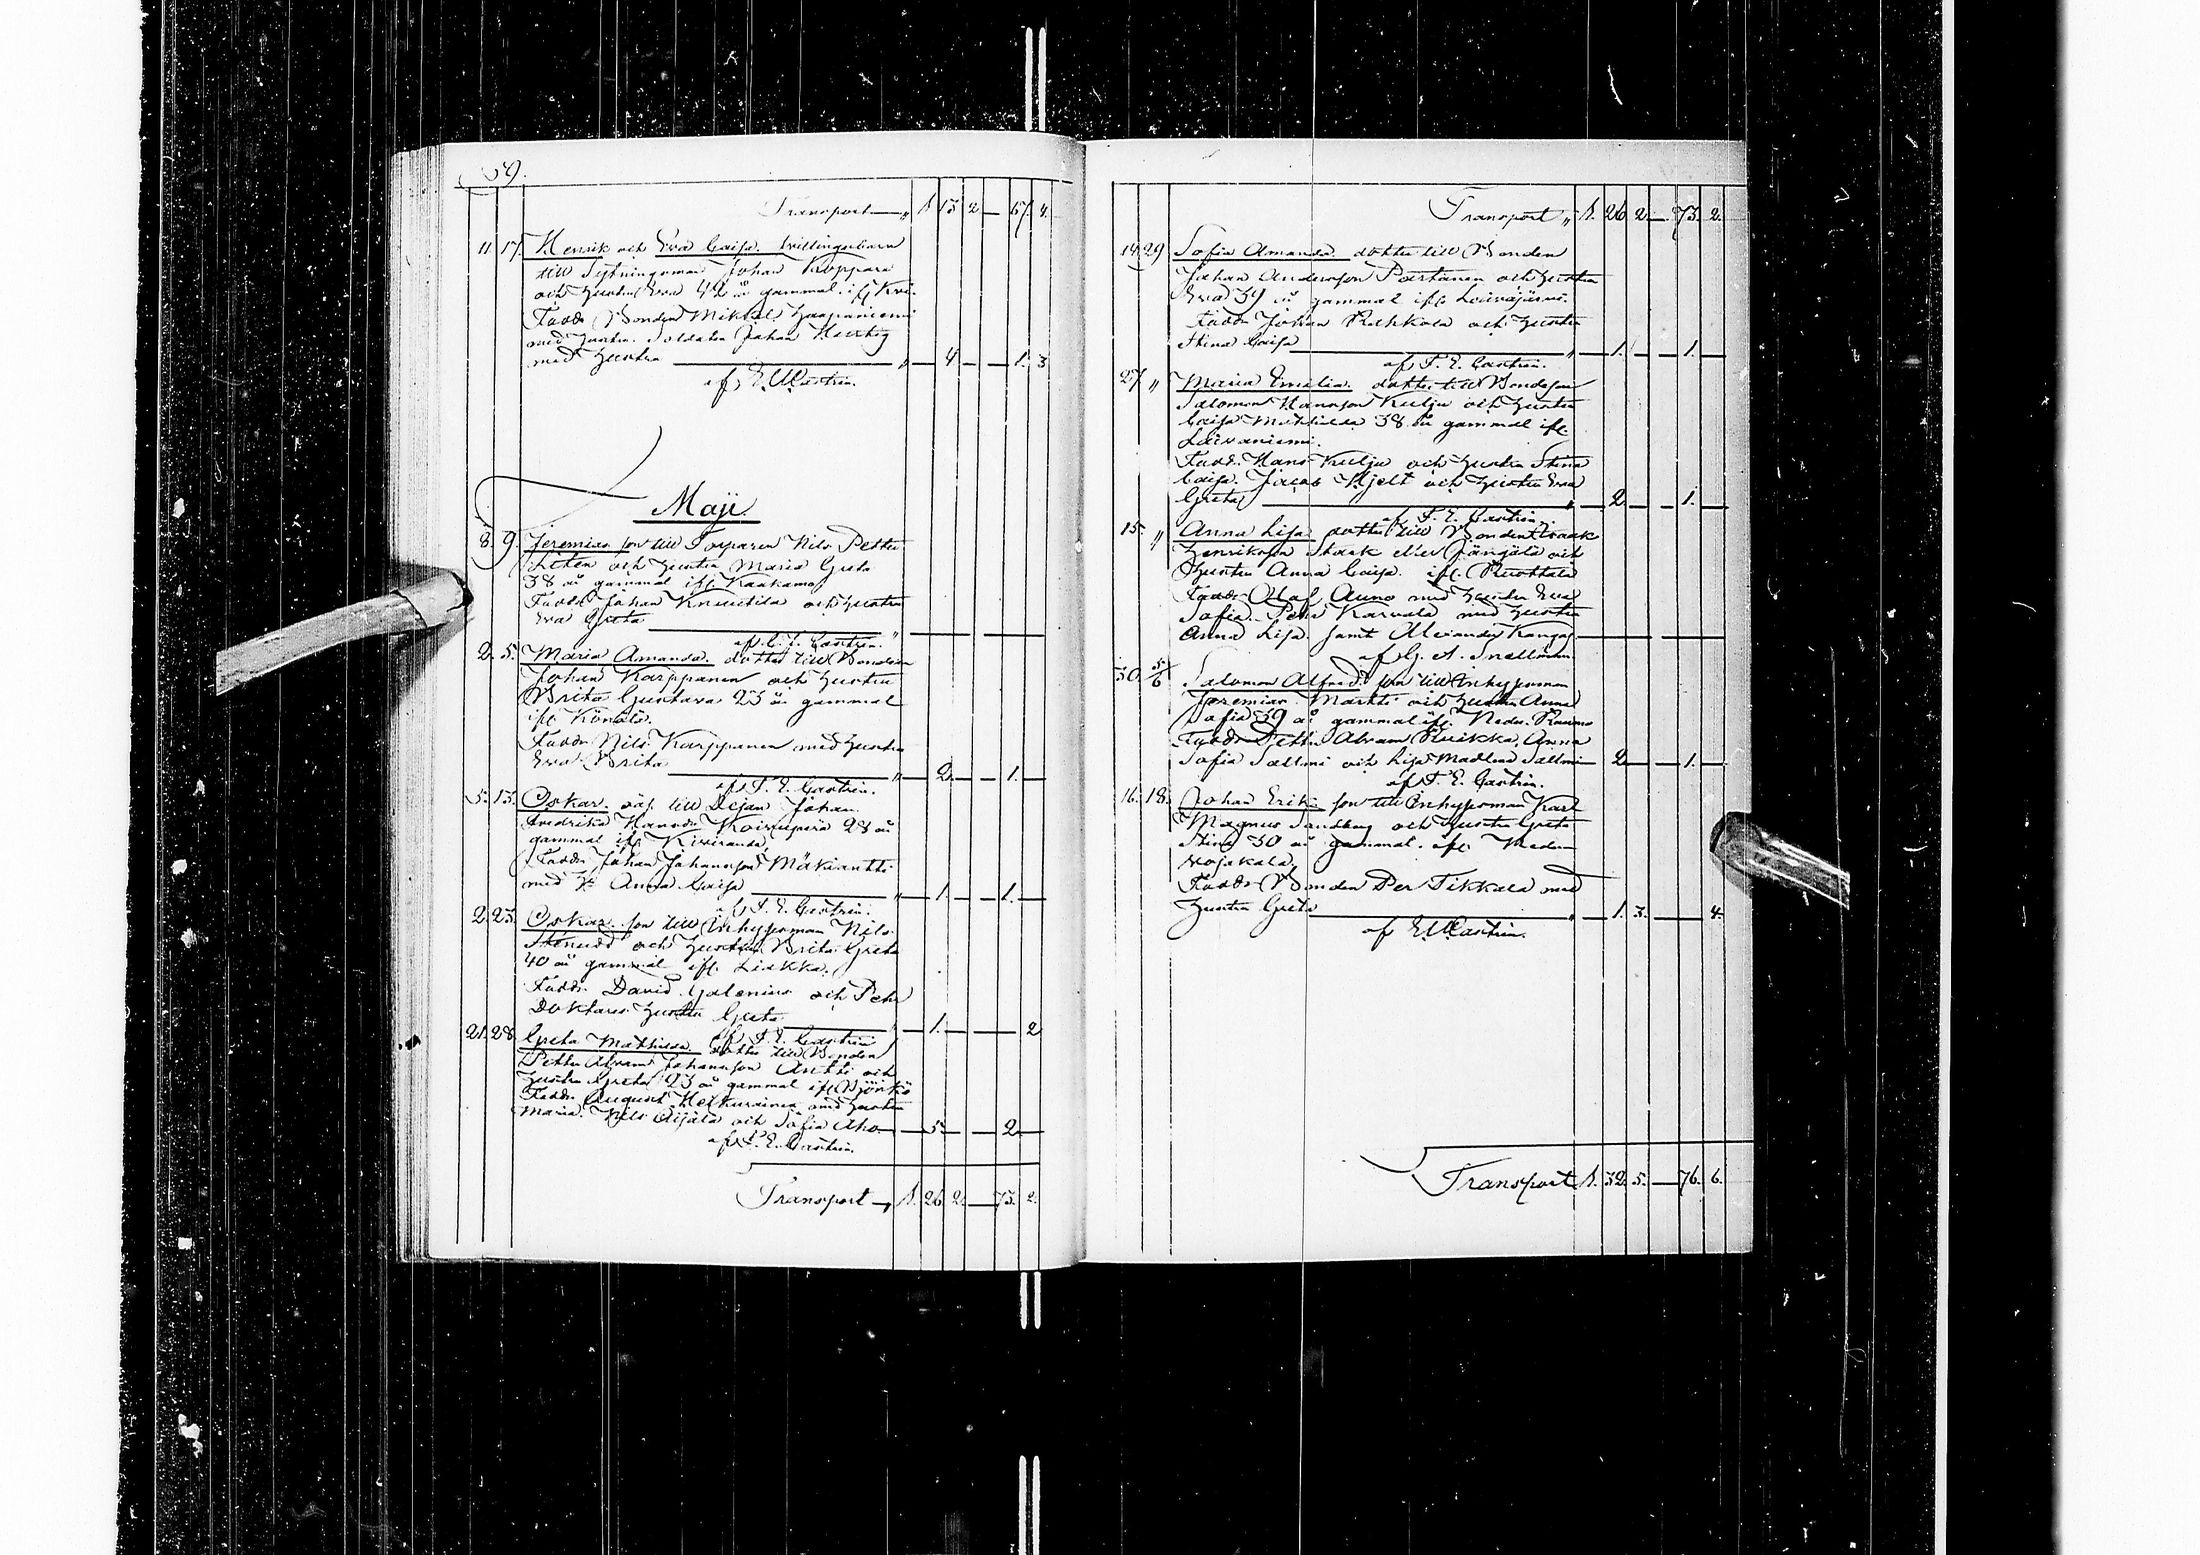 59.
Transport — „ 1. 13 2 — 67. 4.
11. 17. Henrik och Eva Caisa. tvillingabarn
till Sytningsman Johan Koppara
och hustru Eva 42 år gammal. ifr.
Fadd. Bonden Mikkel Haapaniemi
med hustru. Soldaten Johan Hurtig
med hustru — „ 4 — 1. 3
af E. W. Castrén.
Maji.
8. 9. Jeremias son till Torparen Nils Petter
Liten och hustru Maria Greta
38 år gammal ifr. Kaakamo
Fadd. Johan Knuutila och hustru
Eva Greta — „
af Castrén.
2. 5. Maria Amanda. dotter till Bonden
Johan Karppanen och hustru
Brita Gustava 23 år gammal
ifr. Könölä.
Fadd. Nils Karppanen med hustru
Eva Brita — „ 2. — 1. —
af F. E. Castrén.
5. 13. Oskar. oäf. till Dejan Johan
Fredrika Koivuperä 28 år
gammal ifr. Kiviranda.
Fadd. Johan Johansson Mäkiantti
med H. Anna Caisa — „ 1. — 1. —
af F. E. Castrén.
2. 23. Oskar. son till Inhysesman Nils
Stenudd och hustru Brita Greta
40 år gammal ifr. Liakka.
Fadd. David Galenius och Pehr
Doktares hustru Greta — „ 1. — 2
af F. E. Castrén
21. 28. Greta Mathilda. dotter till Bonden
Petter Abram Johansson Antti och
hustru Greta 23 år gammal ifr. Björkö
Fadd. August Heikurainen med hustru
Maria. Nils Äijälä och Sofia Aho. — 5. — 2. —
af F. E. Castrén.
Transport — „ 1. 26. 2. — 73. 2.
Transport „ 1. 26 2. — 73. 2.
14. 29 Sofia Amanda. dotter till Bonden
Johan Andersson Partanen och hustru
Eva 39 år gammal ifr. Laivajärvi.
Fadd. Johan Ruhkala och hustru
Stina Caisa — „ 1. — 1. —
af F. E. Castrén.
27. „ Maria Emelia. dotter till Bondeson
Salomon Hansson Kulju och hustru
Caisa Mathilda 38 år gammal ifr.
Laivaniemi.
Fadd. Hans Kulju och hustru Stina
Caisa. Jacob Hjelt och hustru Eva
Greta — „ 2. — 1. —
af F. E. Castrén.
15. „ Anna Lisa dotter till Bonden Isaak
Henriksson Staak eller och
hustru Anna Caisa. ifr. Ruottala
Fadd. Olof Auno med hustru Eva
Sofia. Pehr Karvala med hustru
Anna Lisa. samt Alexander Kangas —
af G. A. Snellman.
30. 5/6 Salomon Alfred. son till Inhysesman
Jeremias Martti och hustru Anna
Sofia 39 år gammal ifr. Neder Raumo
Fadd. Petter Abram Ruikka. Anna
Sofia Saltmi och Lisa Madlena Saltmi — 2. — 1. —
af F. E. Castrén.
16. 18. Johan Erik. son till Inhysesman Karl
Magnus Sandberg och hustru Greta
Stina 30 år gammal. ifr. Neder
Vojakala.
Fadd. Bonden Per Tikkala med
hustru Greta — „ 1. 3. — 4.
af E. W. Castrén.
Transport 1. 32. 5. — 76. 6.